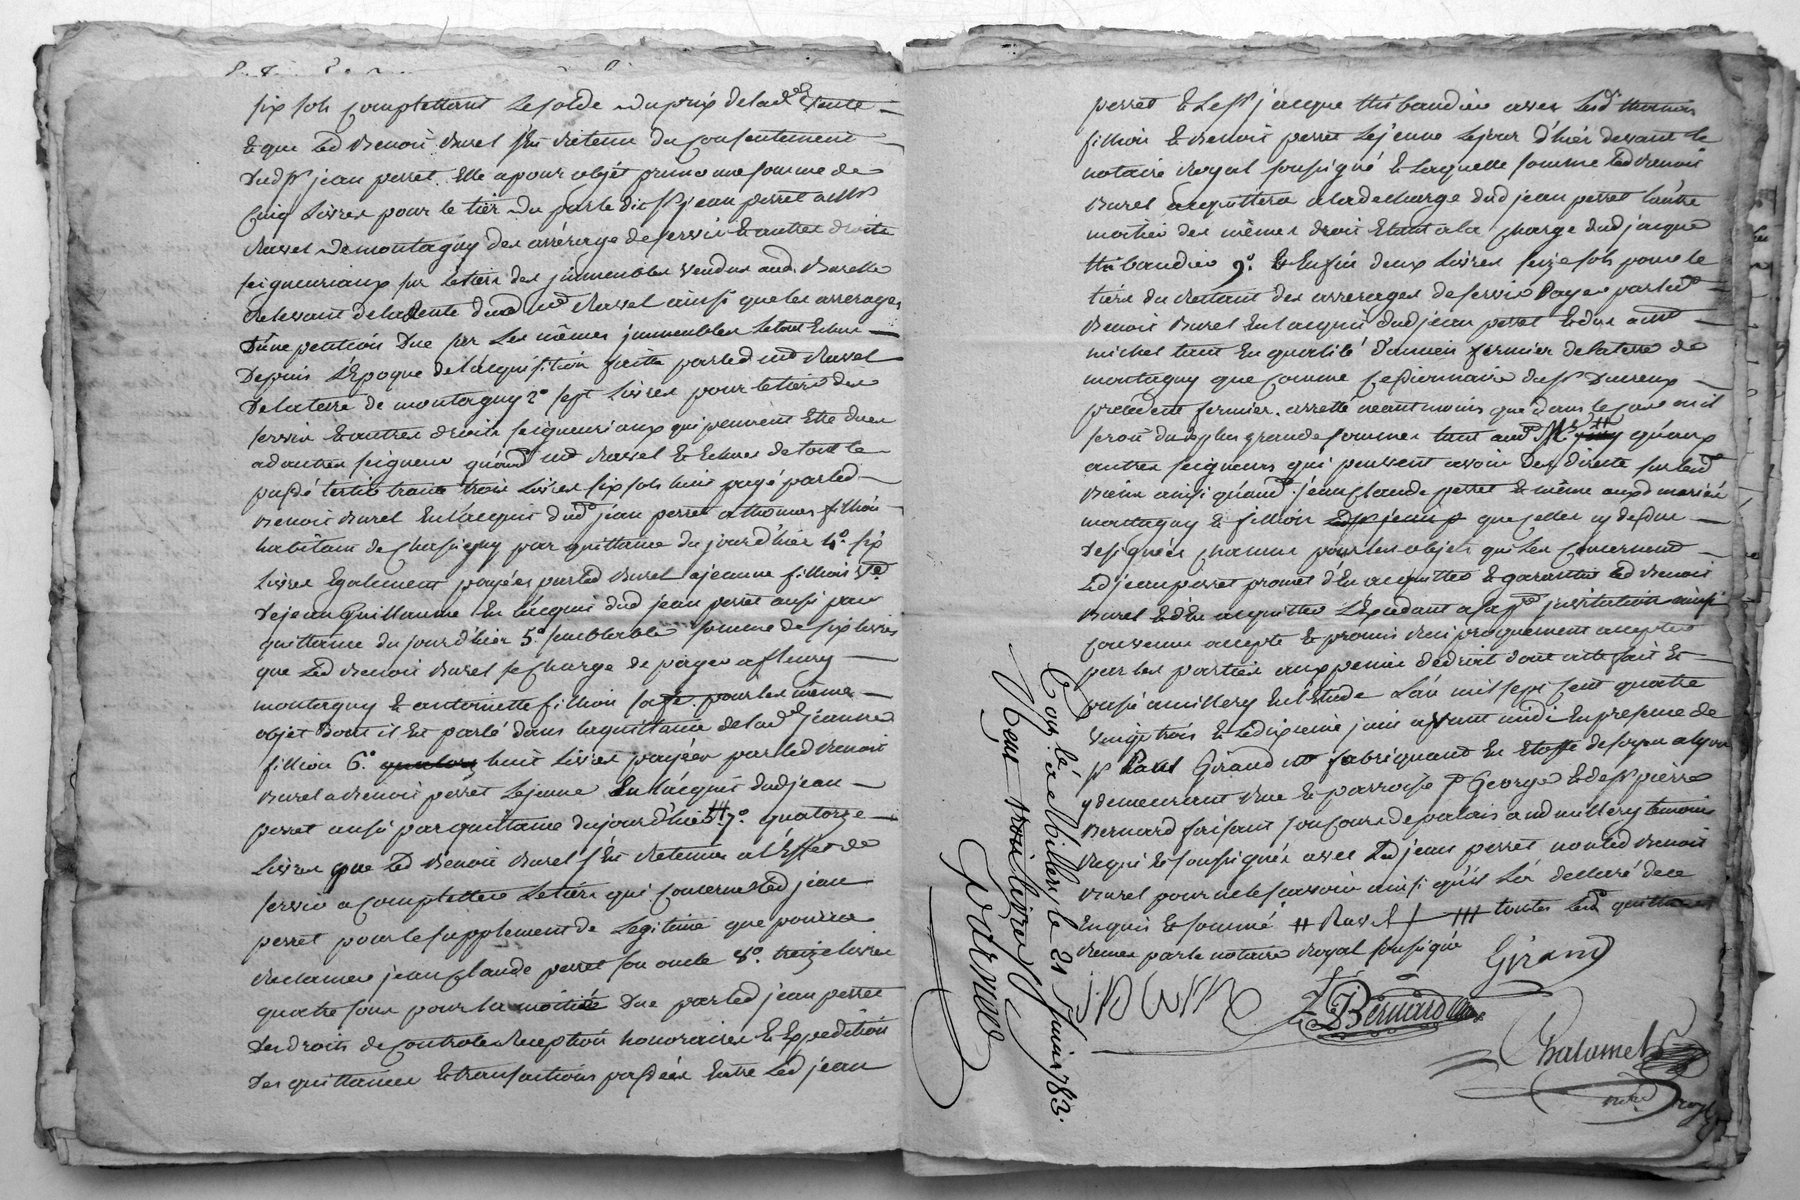 six sols complettant le solde du prix de lad.e vente
& que led Benoit Burel s'est retenu du consentement
dud Sr jean perret. Elle a pour objet primo une somme de
Cinq Livres pour le tier du par ledit Sr jean perret a Mr
Ravel de montagny des arrérage de servis & autres droits
seigneuriaux sur le tiers des jmmeubles vendus aud. Burel &
relevant de la Rente dud Mr Ravel ainsi que les arrerages
d'une petition due sur les mêmes jmmeubles le tout Echu
Depuis L'Epoque de l'acquisition faite par led Mr Ravel
De la terre de montagny 2º sept Livres pour le tiers des
servis & autres droits seigneuriaux qui peuvent Etre dues
ad autres seigneurs qu'aud Mr Ravel & Echus de tout le
passé tertio trante trois Livres six sols huit payé par led
Benoit Burel En l'acquit dud jean perret a thomas fillion
habitant de Chassagny par quittance du jour d'hier 4º. six
Livres Egalement payées par led Burel a jeanne fillion Ve.
De jean Guillaume En l'acquit dud jean perret aussi par
quittance du jour d'hier 5º. semblable somme de six livres
que Led Benoit Burel se Charge de payer a fleury
montagny & antoinette fillion sa fe. pour les même
objet Dont il Est parlé dans la quittance de lad.e jeanne
fillion 6º. huit Livres payées par led Benoit
Burel a Benoit perret Lejeune En l'acquit dud jean
perret aussi par quittance du jour d'hier 7º. quatorze
Livres que led Benoit Burel s'est Retenu a l'Effet de
servir a Completter Le tiers qui Concerne led jean
perret pour le supplement de Legitime que pourra
Reclamer jean Claude perret son oncle 8º. treize livres
quatre sous pour la moitié Due par led jean perret
Des droits de Controle Reception honoraires & Expedition
Des quittances & transactions passées Entre Led jean
perret & Le Sr jacque thibaudier avec Lesd thomas
fillion & Benoit perret Lejeune Lejour d'hier devant le
notaire Royal soussigné & Laquelle somme led Benoit
Burel acquittera a la decharge dud jean perret l'autre
moitié des mêmes droit Etant a la Charge dud jacque
thibaudier 9º. & Enfin deux Livres seize sols pour le
tiers du Restant des arrerages de servis Payes par led
Benoit Burel En l'acquit dud jean perret & dus a Mr
michel tant En qualité d'ancien fermier de la terre de
montagny que Comme Cessionnaire du Sr Dureux
precedent fermier. arretté neantmoins que dans le Cas ou il
seroit du de plus grandes sommes tant aud Mr qu'aux
autres seigneurs qui peuvent avoir Des Directe sur lesd
Biens ainsi qu'aud. jean Claude perret & même auxd mariés
montagny & fillion que celles cy dessus
Designées chacune pour les objets qui les Concernent
Led jean perret promet d'En acquitter & garantir led Benoit
Burel & d'En acquitter L'Excedant a sa pre. jnvitation ainsi
Convenu accepté & promis Reciproquement accepter
par les parties aux peines de droit dont acte fait &
passé a millery En l'Etude L'an mil sept Cent quatre
vingt trois & le dixieme juin avant midi En presence de
Sr Paul Giraud Md fabriquant En Etoffe de soye a lyon
y demeurant Rue & parroisse St George & de Sr pierre
Bernard faisant son Cours de palais aud millery temoins
Requis & soussignés avec Led jean perret non led Benoit
Burel pour ne le savoir ainsi qu'il L'a declaré de ce
Enquis & sommé # Ravel # toutes Lesd quittances
Reçues par le notaire Royal soussigné
Giraud
Bernard
Chalamel
not.re Royal
Con.lé a Millery le 21 Juin 1783.
Reçu trois livres